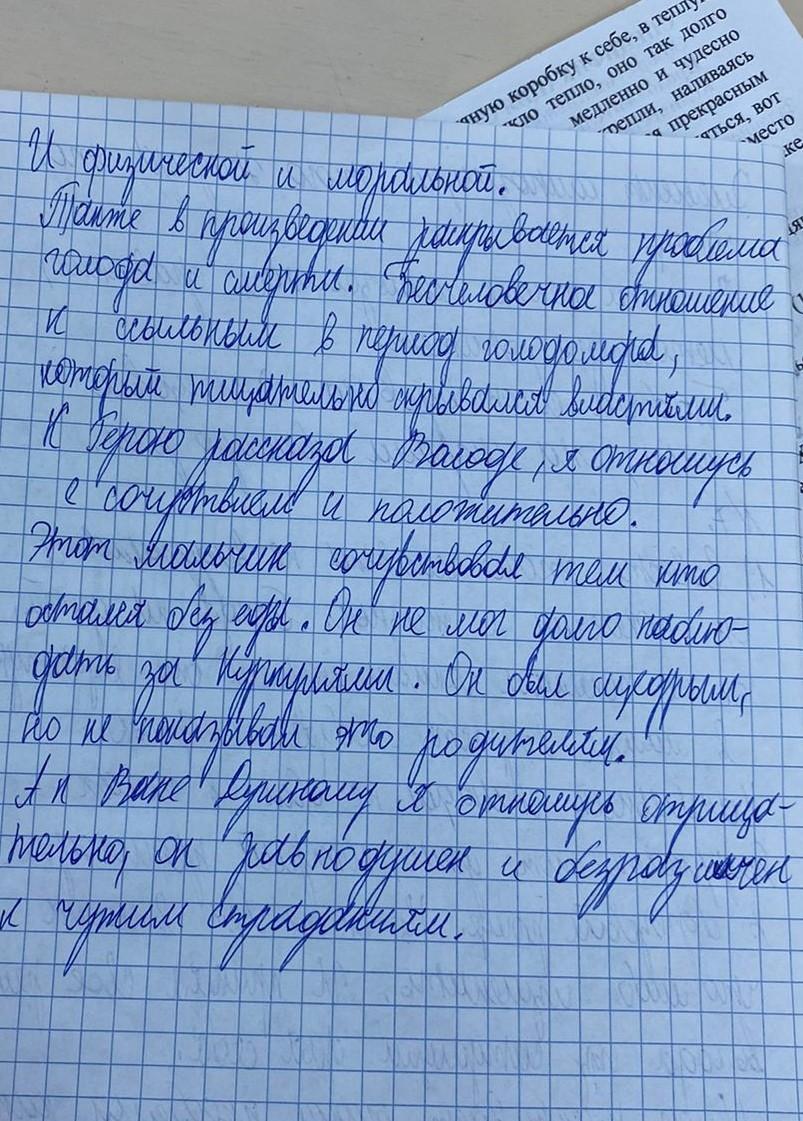 яную коробку к себе, в теплу
кло тепло, оно так долго
медленно и чудесно
крепли, наливаясь
я прекрасным
яться, вот
место
И физической и моральной.
Также в произведении раскрывается проблема
голода и смерти. Бесчеловечное отношение
к ссыльным в период голодомора,
который тщательно скрывался властями.
К Герою рассказа Валоде, я отношусь
с сочуствием и положительно.
Этот мальчик сочувствовал тем кто
остался без еды. Он не мог долго наблю-
дать за Куркулями. Он был щедрым,
но не показывал это родителям.
А к Ване Душному я отношусь отрица-
тельно, он равнодушен и безразличен
к чужим страданиям.